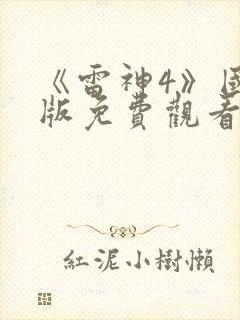 《雷神4》
版免費觀看
紅泥小樹懶